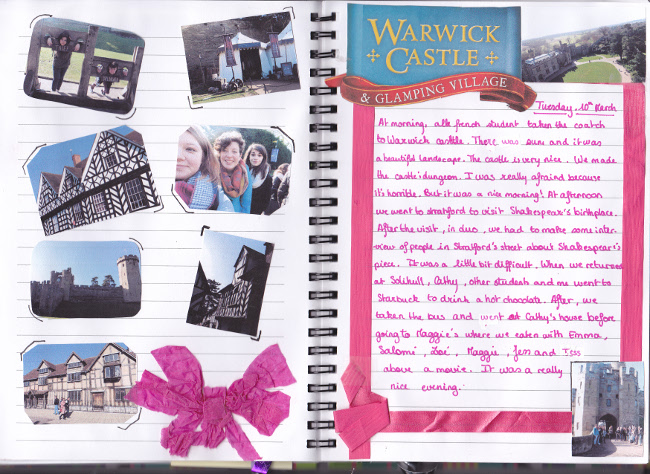 WARWICK
CASTLE
& GLAMPING VILLAGE
Tuesday, 10th March
At morning, alls french student taken the coatch
to Warwick castle. There was sun and it was
a beautiful landscape. The castle is very nice. We made
the castle's dungeon. I was really afraind because
it's horrible. But it was a nice morning! At afternoon
we went to stratford to visit Shakespear's birthplace.
After the visit, in duo, we had to make some inter-
view of people in Stratford's street about Shakespear's
piece. It was a little bit difficult. When we returned
at Solihull, Cathy, other students and me went to
Starbuck to drink a hot chocolate. After, we
taken the bus and went at Cathy's house before
going to Maggie's where we eaten with Emma,
Salomé, Zoé, Maggie, Jess and Tess
above a movie. It was a really
nice evening.